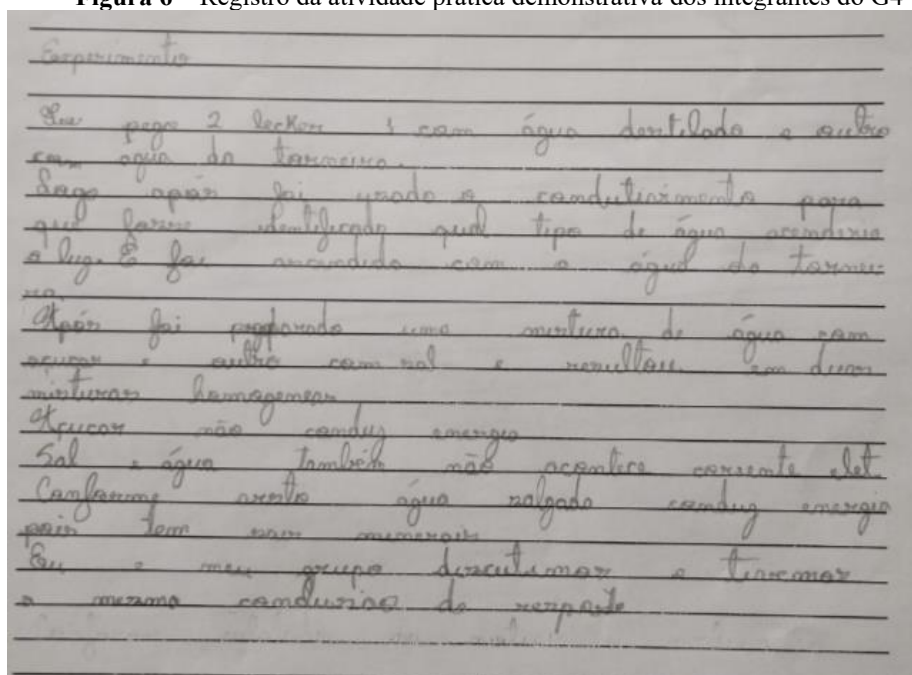 Figura 6 – Registro da atividade prática demonstrativa dos integrantes do G4
Experimento
pego 2 becker 1 com água destilada e outro
com água da torneira.
Logo após foi usado o condutivimento para
que fosse identificado qual tipo de água acenderia
a luz. E foi ascendido com a água da tornei-
ra.
Após foi preparado uma mistura de água com
açucar e outro com sal e resultou em duas
misturas homogeneas
Açucar não conduz energia
Sal e água Também não acontece corrente elet
Conforme água salgada conduz energia
pois tem sais minerais
Eu e meu grupo discutimos e tivemos
a mesma conclusão de resposta